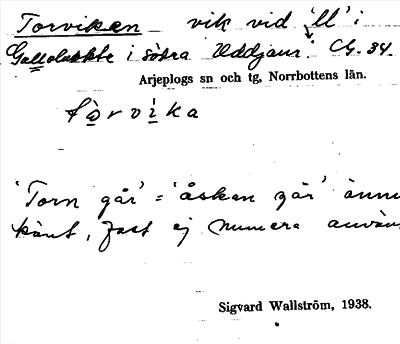 Torviken vik vid 'll' i
Galtoluokte i södra Uddjaur. CG. 34.
Arjeplogs sn och tg, Norrbottens län.
tòrvika
'Torn går' = 'åskan går' ännu
känt, fast ej numera använ
Sigvard Wallström, 1938.